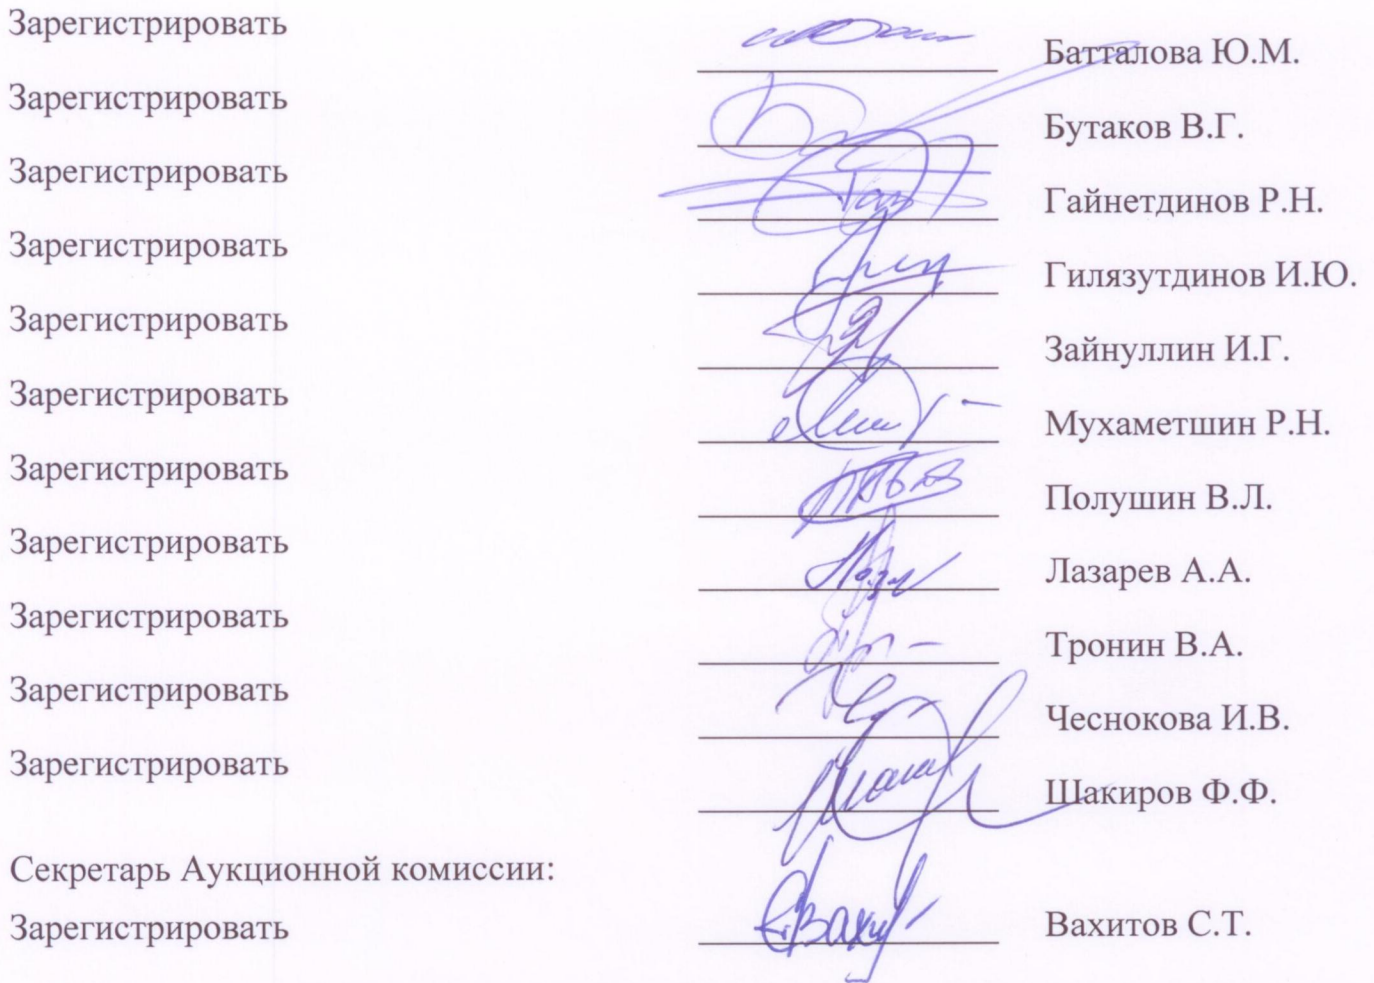 Зарегистрировать Батталова Ю.М.
Зарегистрировать Бутаков В.Г.
Зарегистрировать Гайнетдинов Р.Н.
Зарегистрировать Гилязутдинов И.Ю.
Зарегистрировать Зайнуллин И.Г.
Зарегистрировать Мухаметшин Р.Н.
Зарегистрировать Полушин В.Л.
Зарегистрировать Лазарев А.А.
Зарегистрировать Тронин В.А.
Зарегистрировать Чеснокова И.В.
Зарегистрировать Шакиров Ф.Ф.
Секретарь Аукционной комиссии:
Зарегистрировать Вахитов С.Т.